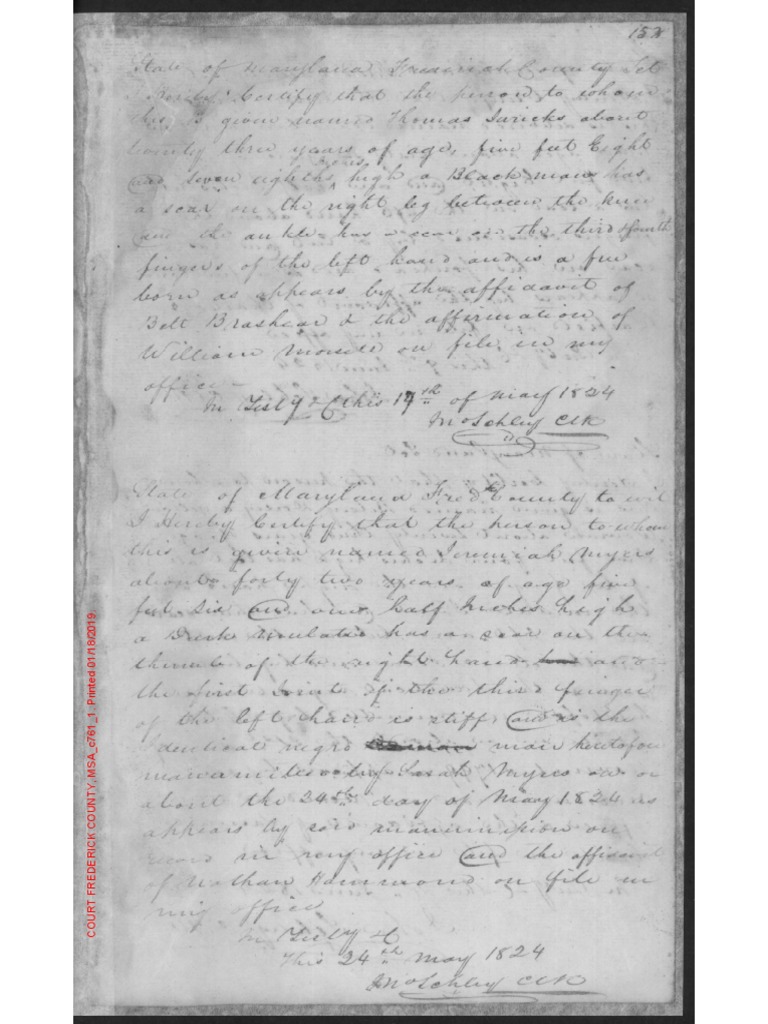 State of Maryland Frederick County Set
I Hereby Certify that the person to whom
this is given named Thomas Suricks about
twenty three years of age, five feet Eight
and seven eighths high a Black man has
a scar on the right leg between the knee
and the ankle has a scar on the third & fourth
fingers of the left hand and is a free
born as appears by the affidavit of
Belt Brashear & the affirmation of
William on file in my
office
In Testy &C this 17th of May 1824
Jno Schley Clk
State of Maryland Fred County to wit
I Hereby Certify that the person to whom
this is given named Jeremiah Myers
about forty two years of age five
feet six and one half Inches high
a Dark mulatto has a scar on the
thumb of the right hand and
the first Joint of the third finger
of the left hand is stiff and is the
Identical negro man heretofore
by Sarah Myres on or
about the 24th day of May 1824 as
appears by said manumission on
record in my office and the affidavit
of Nathan Hammond on file in
my office
In Testy &C
This 24th May 1824
Jno Schley Clk
COURT FREDERICK COUNTY, MSA_c761_1. Printed 01/18/2019.